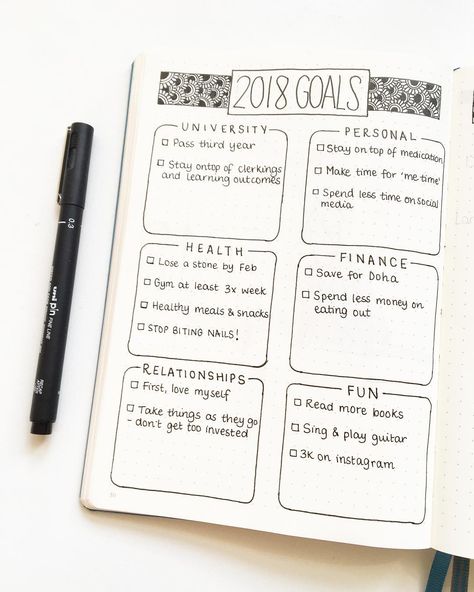 2018 GOALS
UNIVERSITY
Pass third year
Stay on top of clerkings
and learning outcomes
PERSONAL
Stay on top of medication
Make time for 'me time'
Spend less time on social
media
HEALTH
Lose a stone by Feb
Gym at least 3x week
Healthy meals & snacks
STOP BITING NAILS!
FINANCE
Save for Doha
Spend less money on
eating out
RELATIONSHIPS
First, love myself
Take things as they go
- don't get too invested
FUN
Read more books
Sing & play guitar
3K on instagram
0.3
uni pin
FINE LINE